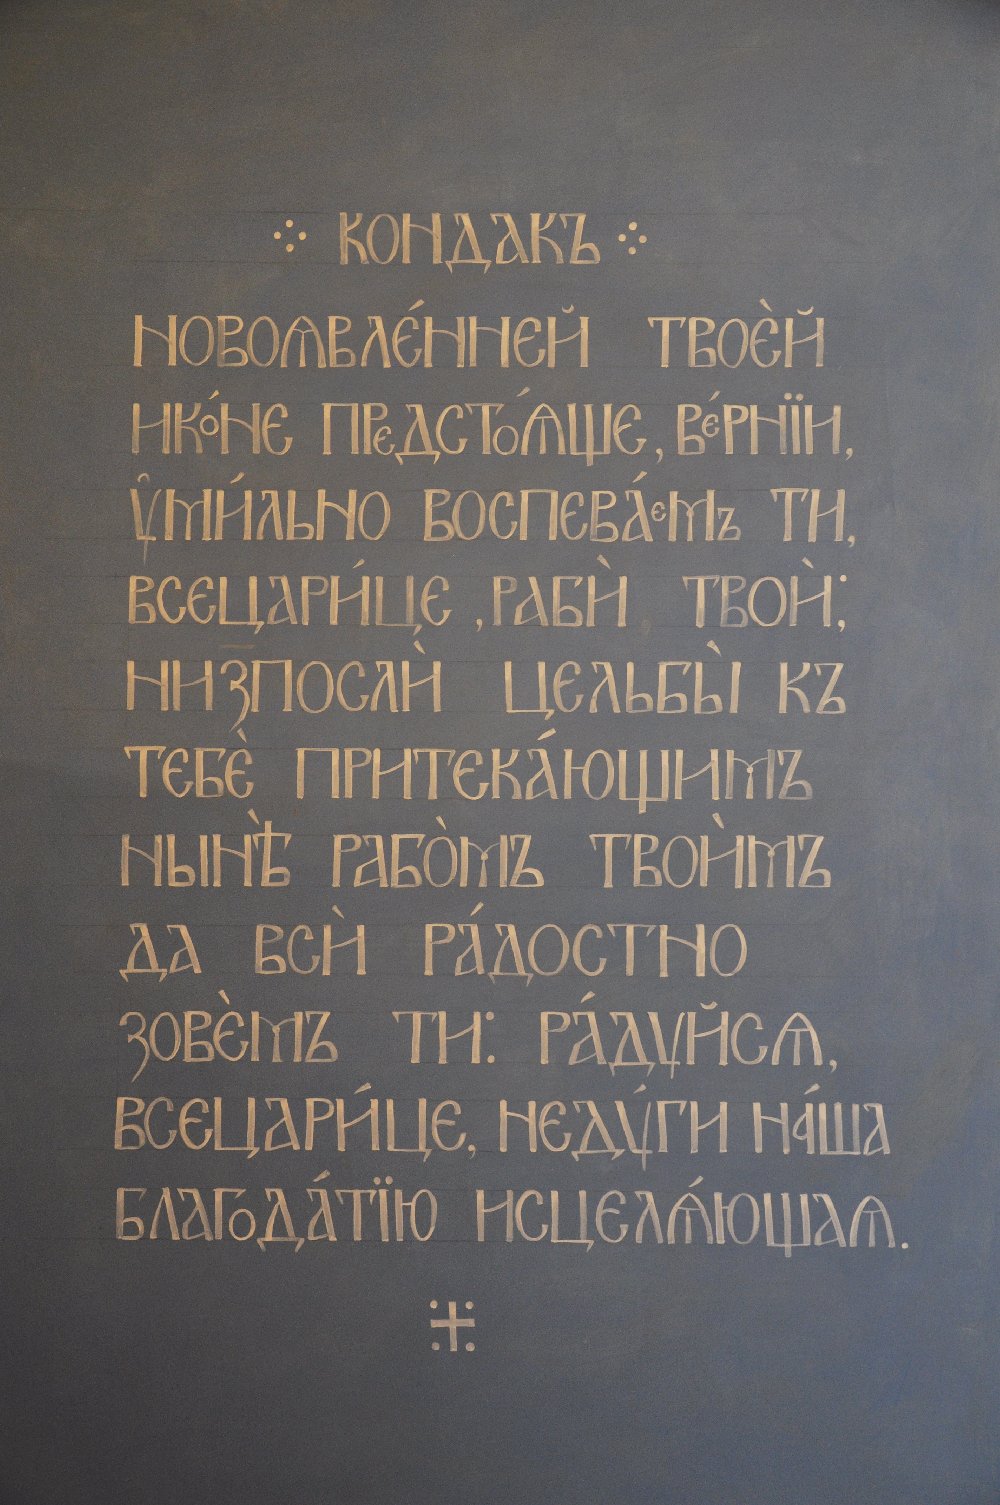 КОНДАКЪ
НОВОѦВЛЕ́ННЕЙ ТВОЀЙ
ИКО́НЕ ПРЕДСТОѦ́ЩЕ, ВЕ́РНЇИ,
ѴМИ́ЛЬНО ВОСПЕВА́ЕМЪ ТИ,
ВСЕЦАРИ́ЦЕ, РАБЍ ТВОЍ;
НИЗПОСЛЍ ЦЕЛЬБЫ̀ КЪ
ТЕБЀ ПРИТЕКА́ЮЩИМЪ
НЫНѢ̀ РАБО̀МЪ ТВОЍМЪ
ДА ВСЍ РА́ДОСТНО
ЗОВЀМЪ ТИ: РА́ДѴЙСѦ,
ВСЕЦАРИ́ЦЕ, НЕДѴ́ГИ НА́ША
БЛАГОДА́ТЇЮ ИСЦЕЛѦ́ЮЩАѦ.